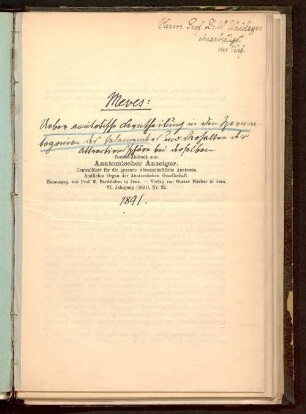 Herrn Prof. Dr. W. Waldeyer
der Verf.
Meves:
Ueber amitotische Kerntheilung in den Spermatogonien des Salamanders und Verhalten der Attractionssphäre bei derselben
Separat-Abdruck aus:
Anatomischer Anzeiger.
Centralblatt für die gesamte wissenschaftliche Anatomie.
Amtliches Organ der Anatomischen Gesellschaft.
Herausgeg. von Prof. K. Bardeleben in Jena. — Verlag von Gustav Fischer in Jena.
VI. Jahrgang (1891), Nr. 22.
1891.